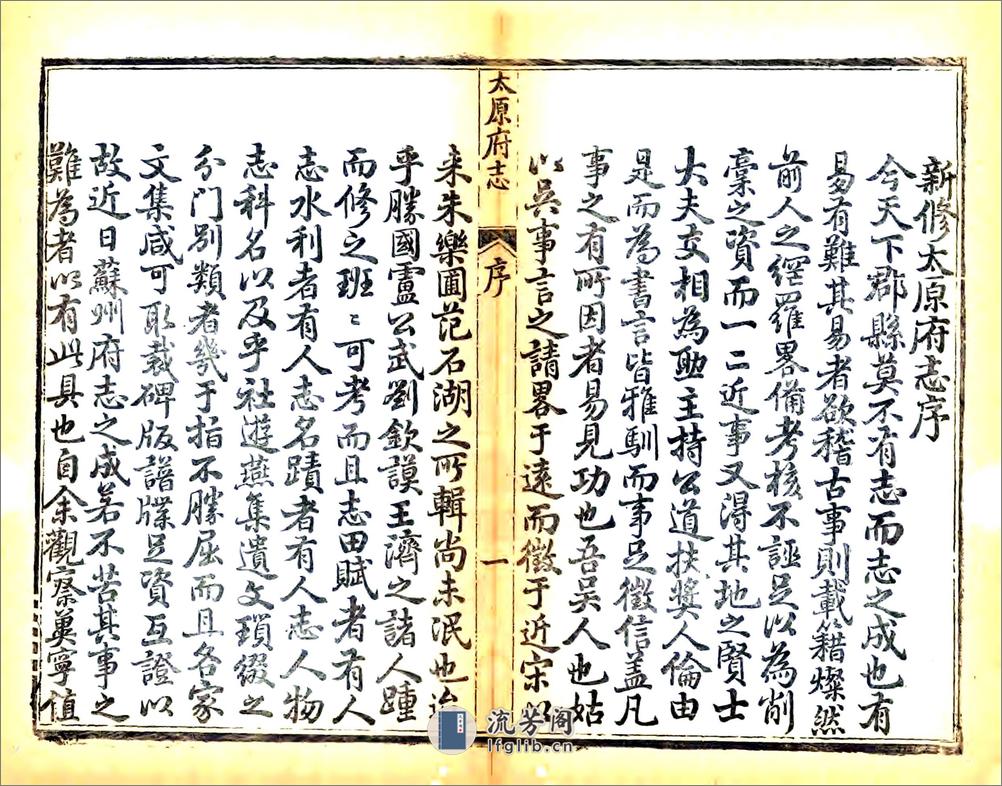 新修太原府志序
今天下郡縣莫不有志而志之成也有
易有難其易者欲稽古事則載籍燦然
前人之網羅畧備考核不誣足以為削
稾之資而一二近事又淂其地之賢士
大夫交相為助主持公道扶奬人倫由
是而為書言皆雅馴而事足徵信盖凡
事之有所因者易見功也吾吴人也姑
以吴事言之請畧于遠而徵于近宋以
太原府志
序
一
来朱樂圃范石湖之所輯尚未泯也迨
乎勝國盧公武劉欽謨王濟之諸人踵
而修之班〻可考而且志田賦者有人
志水利者有人志名蹟者有人志人物
志科名以及乎社遊燕集遺文瑣綴之
分門别類者幾于指不勝屈而且名家
文集咸可取裁碑版譜牒足資互證以
故近日蘇州府志之成若不苦其事之
難為者以有此具也自余觀察冀寧值
流芳阁
lfglib.cn